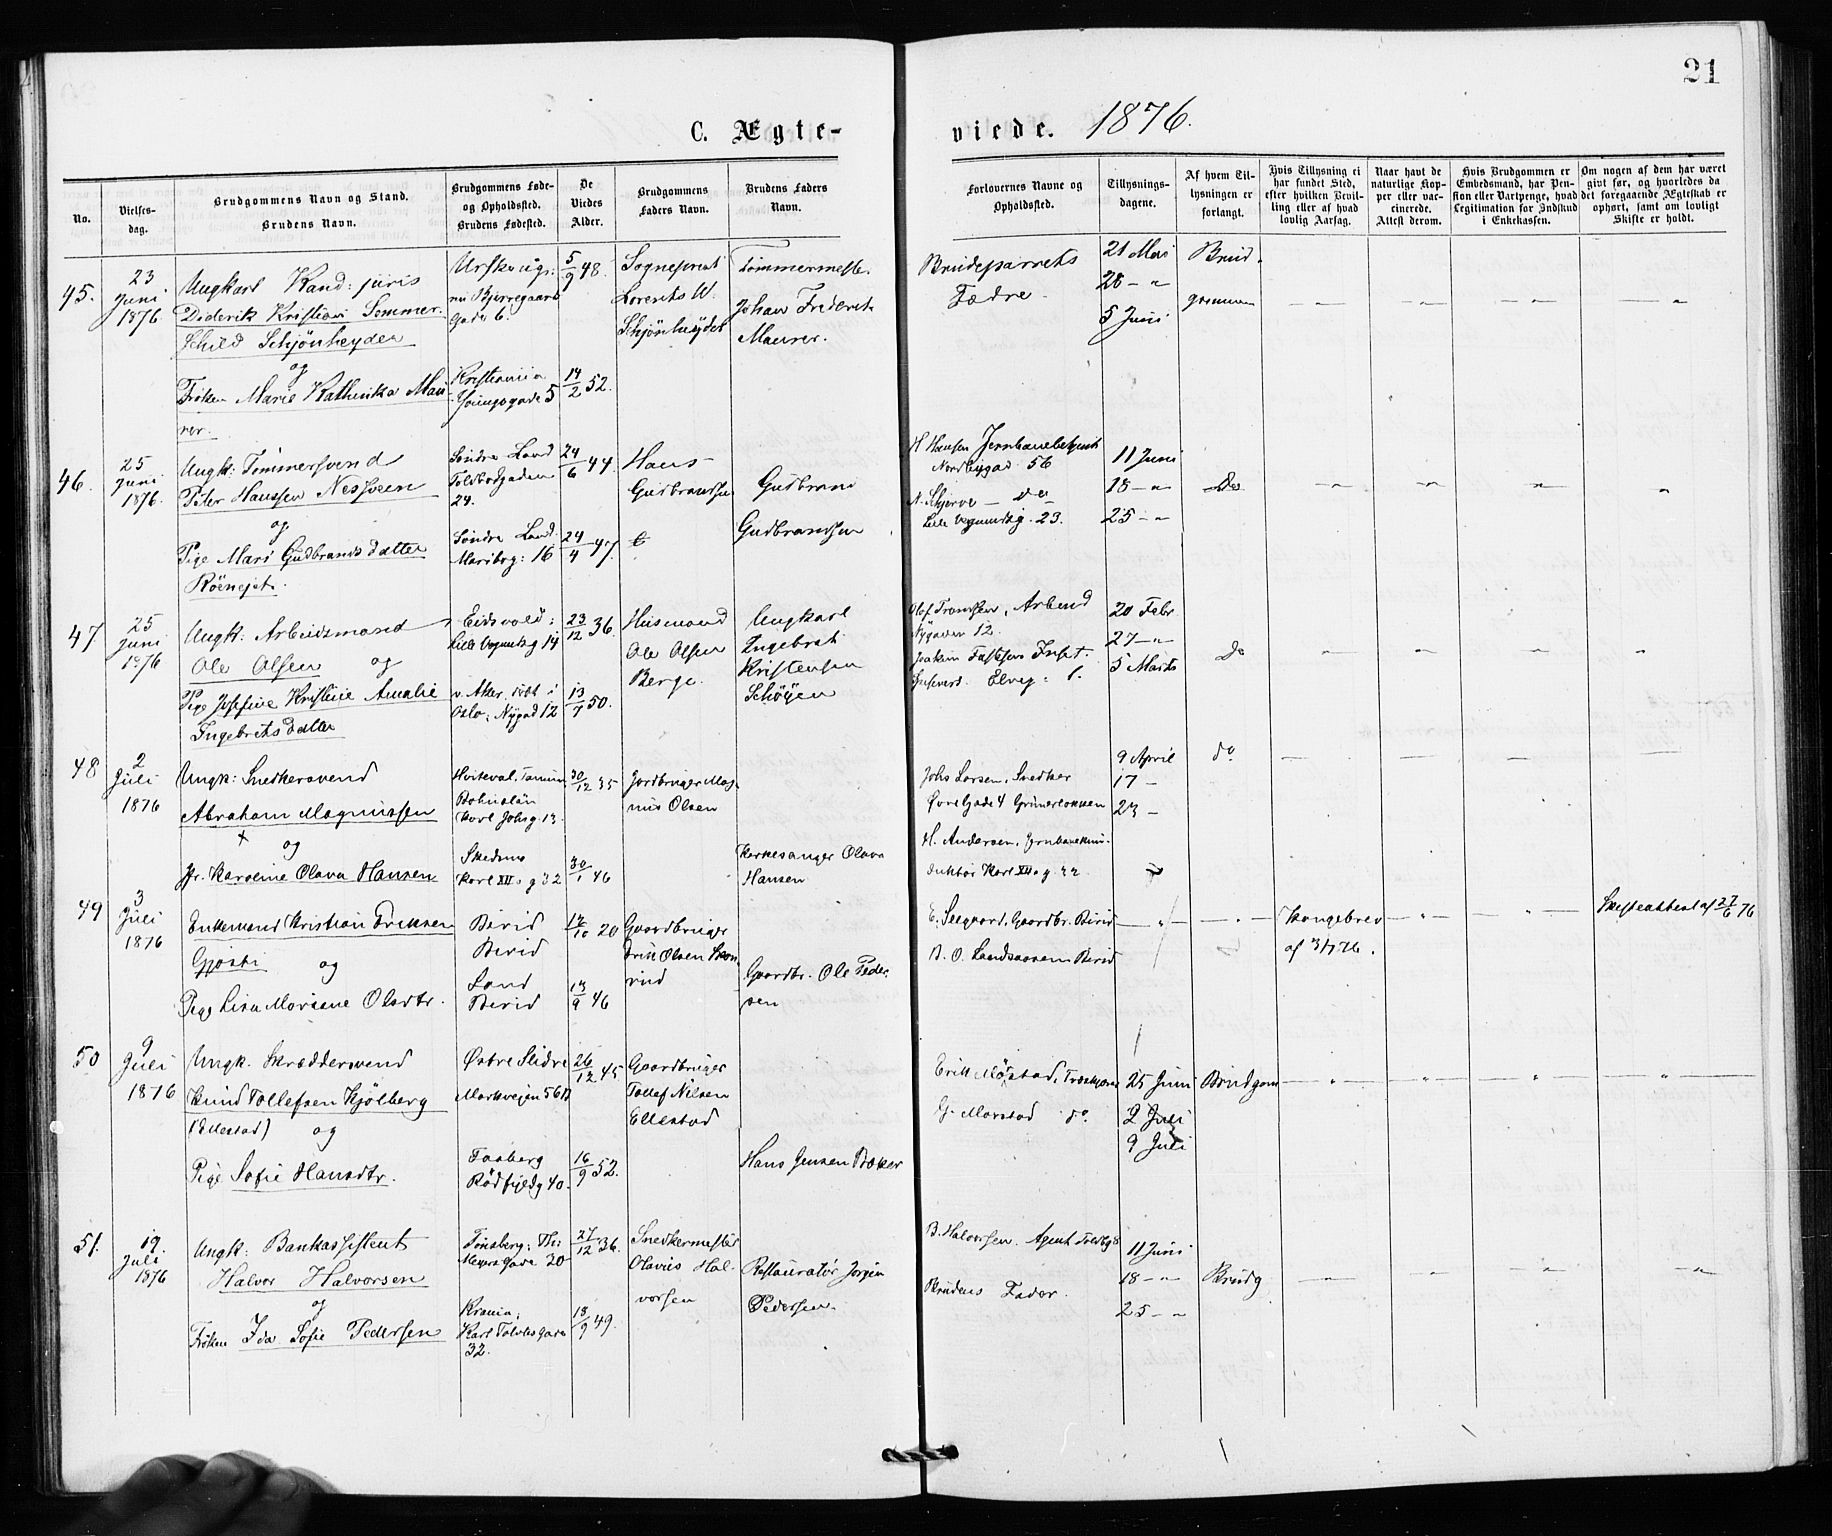 21
C. Ægte-
viede. 1876.
No.
Vielses-
dag.
Brudgommens Navn og Stand.
Brudens Navn.
Brudgommens Føde-
og Opholdssted.
Brudens Fødested.
De
Viedes
Alder.
Brudgommens
Faders Navn.
Brudens Faders
Navn.
Forlovernes Navne og
Opholdssted.
Tillysnings-
dagene.
Af hvem Til-
lysningen er
forlangt.
Hvis Tillysning ei
har fundet Sted,
efter hvilken Bevil-
ling eller af hvad
lovlig Aarsag.
Naar havt de
naturlige Kop-
per eller vac-
cinerede.
Attest derom.
Hvis Brudgommen er
Embedsmand, har Pen-
sion eller Vartpenge, hvad
Legitimation for Indskud
i Enkekassen.
Om nogen af dem har været
givt før, og hvorledes da
det foregaaende Ægteskab er
ophørt, samt om lovligt
Skifte er holdt.
45.
23
Juni
1876.
Ungkarl Kand: juris
Diderik Kristian Sommer-
schild Schjönheyder
og
Frøken Marie Kathinka Mau-
rer.
Urskoug:
nu Bjerregaards
Gade 6.
Kristiania
5
5/9 48.
14/2 52.
Sogneprest
Lorents W.
Schjönheyder
Tømmermester
Johan Frederik
Maurer.
Brudeparrets
Fædre.
21 Mai
28 - "
5 Juni
Brud-
gommen
46.
25
Juni
1876.
Ungk: Tømmersvend
Peter Hanssen Nesseien
og
Pige Mari Gudbrands Datter
Söndre Land
Toldbodgaden
24.
Söndre Land
Maribog: 16
24/6 44.
24/4 47.
Hans
Gudbrandsen
Gudbrand
Gudbrandsen
H. Hansen Jernbanebetjent
Nordbygad 56
N. Skjerve - do
Lille Vognmandsg. 23.
11 Juni
18 - "
25 - "
Do
47
25
Juni
1876
Ungk: Arbeidsmand
Ole Olsen og
Pige Josefine Kristine Amalie
Ingebrets Datter
Eidsvold:
Lille Vognmdsg 14
v. Aker, född i
Oslo: Nygad 12
23/12 36.
13/7 50.
Husmand
Ole Olsen
Berge.
Ungkarl
Ingebret
Kristensen
Schöyen
Olaf Frandsen, Arbeid
Nygaden 12.
Elveg: 1.
20 Febr
27 - "
5 Marts
Do
48
2
Juli
1876
Ungk: Snedkersvend
Abraham Magnussen
x
og
Jfr. Karoline Olava Hansen
Hviteval, Tanum
Bohuslän
Karl Johsg. 13.
Skedsmo
Karl XII s g 32
30/12 35
30/1 46
Jordbruger Mag-
nus Olsen
Kirkesanger Olava
Hansen
Johs Larsen, Snedker
Øvre Gade 4 Grünerløkken
H. Andersen, Jernbanekon-
duktør Karl XII s g. 32
9 April
17 -
23 -
do
49
3
Juli
1876
Enkemand Kristian Eriksen
Gjøsti og
Pige Lisa Mariane Olsdtr.
Birid
Birid
Land
Birid
20
13/9 46
Gaardbruger
Erik Olsen Skon-
rud
Gaardbr. Ole Peder-
sen
E. Seegaard, Gaardbr. Birid
B. O. Landsaasen Birid
Kongebrev
af 3/7 76.
Skifteattest af 27/6 76
50
9
Juli
1876
Ungk. Skræddersvend
Knud Tollefsen Kjölberg
(Ellestad) og
Pige Sofie Hansdtr.
Östre Slidre
Markveien 56 B
Faaberg
Rödfyldg 40.
26/12 45
16/9 52.
Gaardbruger
Tollef Nilsen
Ellestad
Hans Jensen Bakke
Erik Möstad,
G. Marstad do.
25 Juni
2 Juli
9 Juli
Brudgom
51.
19.
Juli
1876
Ungk: Bankassistent
Halvor Halvorsen
og
Frøken Ida Sofie Pedersen
Tönsberg: Th:
Meyers Gade 30
Krania,
Karl Tolvtes Gade
32.
27/12 36.
18/9 49.
Snedkermester
Olavus Hal-
vorsen
Restauratör Jorgen
Pedersen.
B. Halvorsen. Agent Toldbg 8
Brudens Fader.
11 Juni
18 - "
25 - "
Brudg